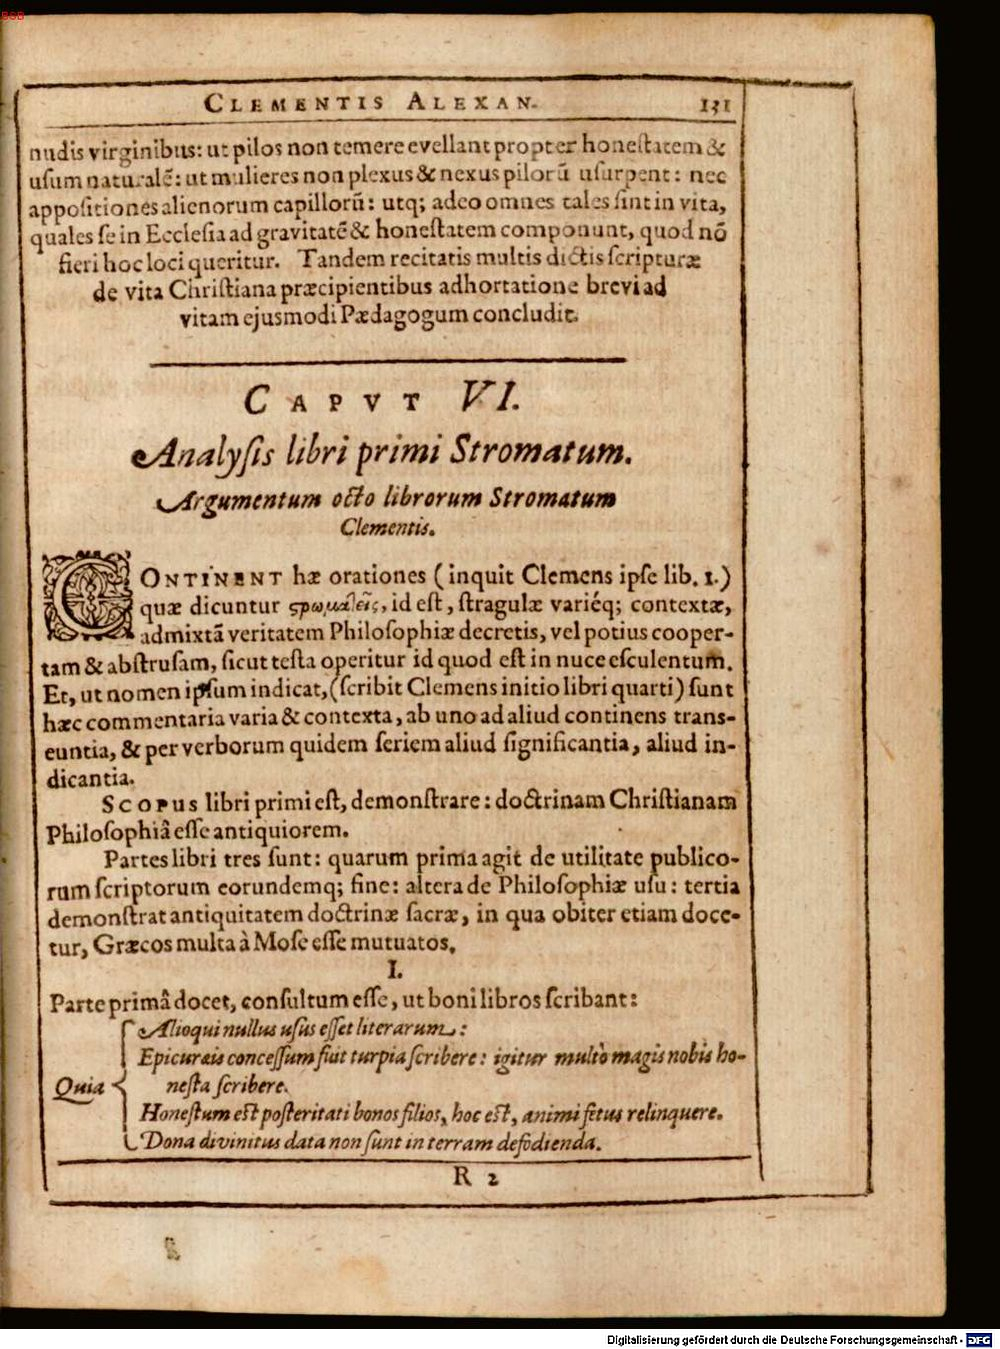 BSB
CLEMENTIS ALEXAN. 131
nudis virginibus: ut pilos non temere evellant propter honeſtatem &
uſum naturalẽ: ut mulieres non plexus & nexus pilorũ uſurpent: nec
appoſitiones alienorum capillorũ: utq; adeo omnes tales ſint in vita,
quales ſe in Eccleſia ad gravitatẽ & honeſtatem componunt, quod nõ
fieri hoc loci queritur. Tandem recitatis multis dictis ſcripturæ
de vita Chriſtiana præcipientibus adhortatione brevi ad
vitam ejusmodi Pædagogum concludit.
CAPVT VI.
Analyſis libri primi Stromatum.
Argumentum octo librorum Stromatum
Clementis.
CONTINENT hæ orationes (inquit Clemens ipſe lib. 1.)
quæ dicuntur ςρωματεῖς, id eſt, ſtragulæ variéq; contextæ,
admixtã veritatem Philoſophiæ decretis, vel potius cooper-
tam & abſtruſam, ſicut teſta operitur id quod eſt in nuce eſculentum.
Et, ut nomen ipſum indicat, (ſcribit Clemens initio libri quarti) ſunt
hæc commentaria varia & contexta, ab uno ad aliud continens trans-
euntia, & per verborum quidem ſeriem aliud ſignificantia, aliud in-
dicantia.
SCOPUS libri primi eſt, demonſtrare: doctrinam Chriſtianam
Philoſophiâ eſſe antiquiorem.
Partes libri tres ſunt: quarum prima agit de utilitate publico-
rum ſcriptorum eorundemq; fine: altera de Philoſophiæ uſu: tertia
demonſtrat antiquitatem doctrinæ ſacræ, in qua obiter etiam doce-
tur, Græcos multa à Moſe eſſe mutuatos.
I.
Parte primâ docet, conſultum eſſe, ut boni libros ſcribant:
Alioqui nullus uſus eſſet literarum:
Epicuræis conceſſum fuit turpia ſcribere: igitur multò magis nobis ho-
Quia neſta ſcribere.
Honeſtum eſt poſteritati bonos filios, hoc eſt, animi fetus relinquere.
Dona divinitus data non ſunt in terram defodienda.
R 2
Digitalisierung gefördert durch die Deutsche Forschungsgemeinschaft - DFG